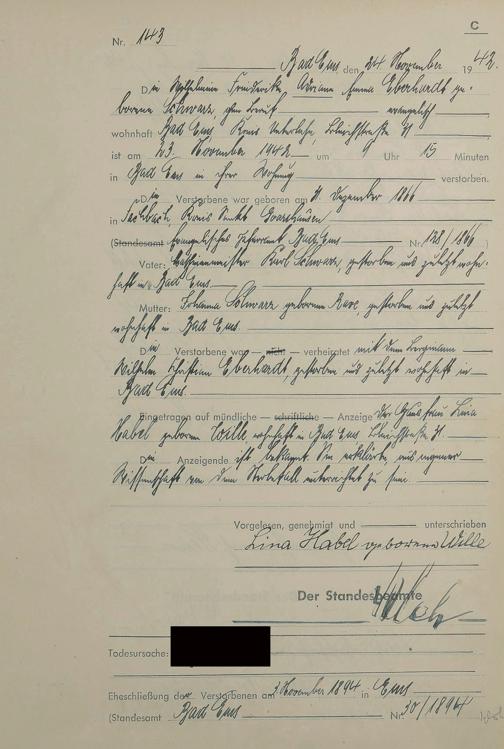 C
Nr. 143
Bad Ems, den 24 November 1942.
Die Wilhelmine Friederike Adriane Emma Eberhardt ge-
borene Schwarz, ohne Beruf evangelisch
wohnhaft Bad Ems Kreis Unterlahn, 31
ist am 23. November 1942 um Uhr 15 Minuten
in Bad Ems in ihrer Wohnung verstorben.
Die Verstorbene war geboren am 31. Dezember 1866
in Kreis Sankt Goarshausen
(Standesamt Evangelisches Pfarramt Bad Ems Nr. 128/1866)
Vater: Karl Schwarz, gestorben und zuletzt wohn-
haft in Bad Ems.
Mutter: Johanna Schwarz geborene, gestorben und zuletzt
wohnhaft in Bad Ems
Die Verstorbene war — nicht — verheiratet mit dem Bergmann
Wilhelm Christian Eberhardt, gestorben und zuletzt wohnhaft in
Bad Ems.
Eingetragen auf mündliche — schriftliche — Anzeige der Ehefrau Lina
Habel geborene Wille, wohnhaft in Bad Ems 31.
Die Anzeigende ist bekannt. Sie erklärte, aus eigener
Wissenschaft von dem Sterbefall unterrichtet zu sein.
Vorgelesen, genehmigt und unterschrieben
Lina Habel geborene Wille
Der Standesbeamte
Todesursache:
Eheschließung der Verstorbenen am November 1894 in Ems
(Standesamt Bad Ems Nr. 30/1894